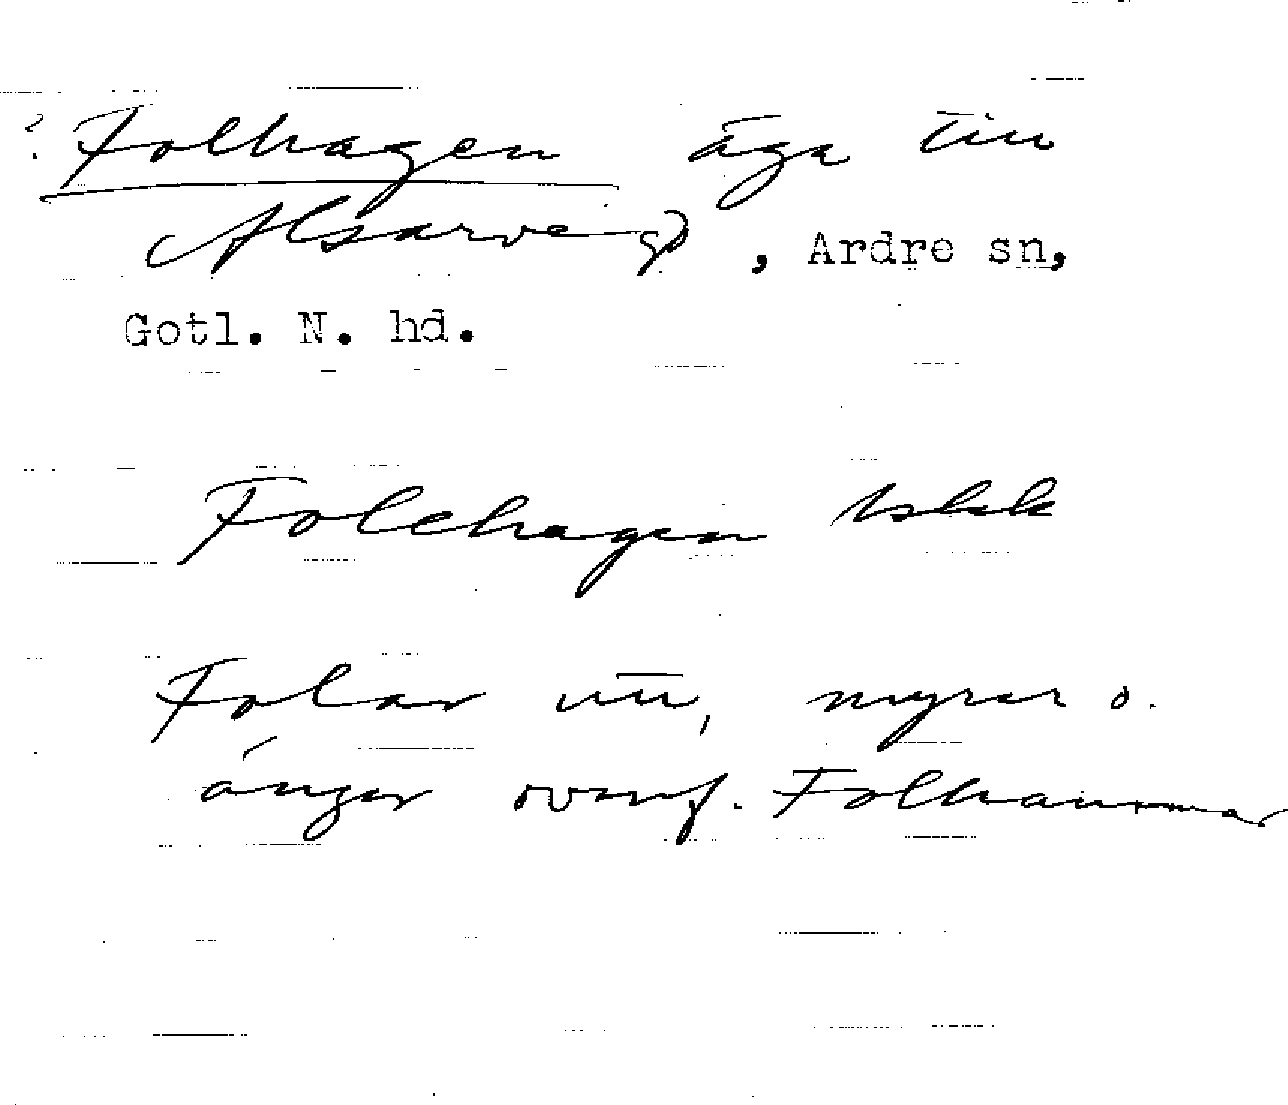 ? Folhagen äga till
Alsarve gd, Ardre sn,
Gotl. N. hd.
Folehagen
Folar myrar o.
änger ovanf. Folhammar